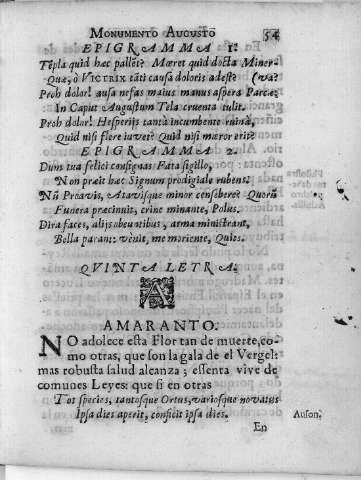 MONUMENTO AUGUSTO
54
EPIGRAMMA 1.
Tẽpla quid hac pallẽt? Mæret quid docta Miner-
Qua, ò VICTRIX tãti causa doloris adest? (va?
Proh dolor! ausa nefas maius manus aspera Parcæ,
In Caput Augustum Tela cruenta tulit.
Proh dolor! Hesperijs tantà incumbente ruinâ,
Quid nisi flere iuvet? Quid nisi mæror erit?
EPIGRAMMA 2.
Dum tua felici consignas Fata sigillo,
Non præit hac Signum prodigiale rubens.
Nũ Proavis, Atavisque minor censeberet Quorũ
Funera præcinuit, crine minante, Polus.
Dira faces, alijs obeuntibus, arma ministrant,
Bella parant: venit, me moriente, Quies.
QVINTA LETRA.
A
AMARANTO.
NO adolece esta Flor tan de muerte, co-
mo otras, que son la gala de el Vergel:
mas robusta salud alcança; essenta vive de
comunes Leyes: que si en otras
Tot species, tantosque Ortus, variosque novatus
Ipsa dies aperit, conficit ipsa dies.
Auson.
En